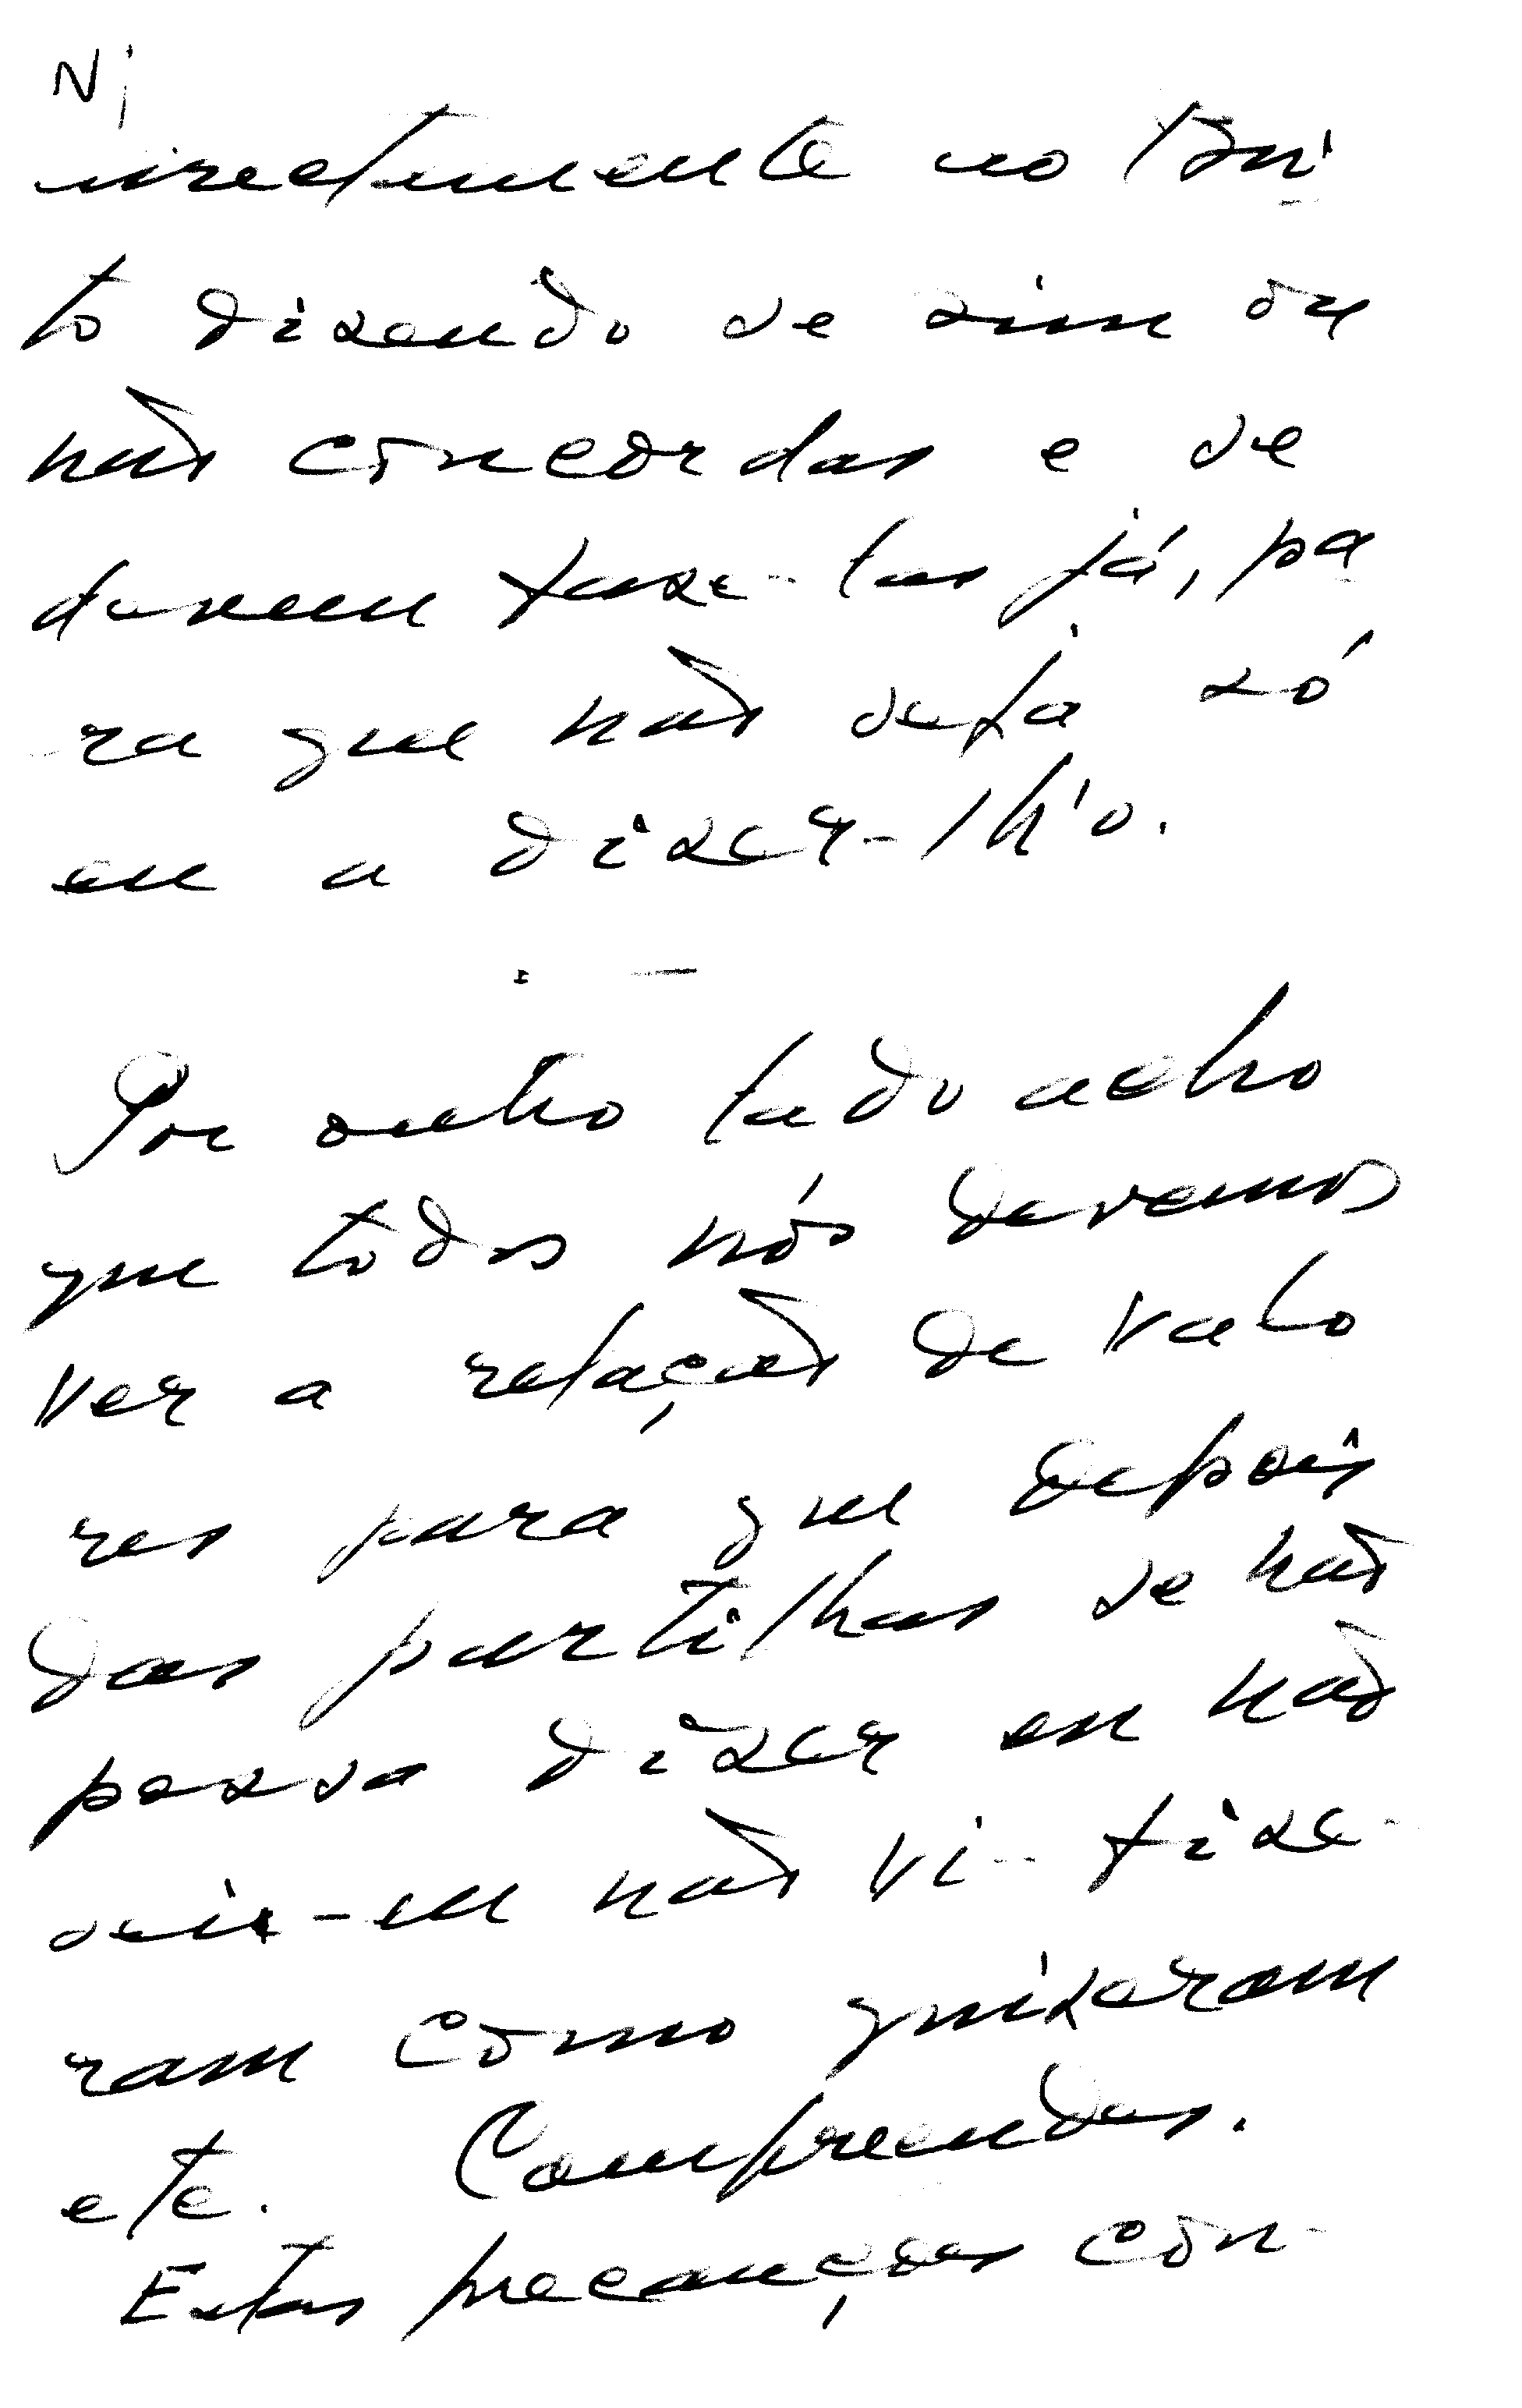 directamente ao Bri
to dizendo se sim ou
não concordas e se
devem faze-las já, pa
ra que não seja só
eu a dizer-lh'o.
Por outro lado acho
que todos nós devemos
ver a relação de valo
res para que depois
das partilhas se não
possa dizer eu não
sei-eu não vi-fize-
ram como quizeram
etc. Comprendes.
Estas precauções con-